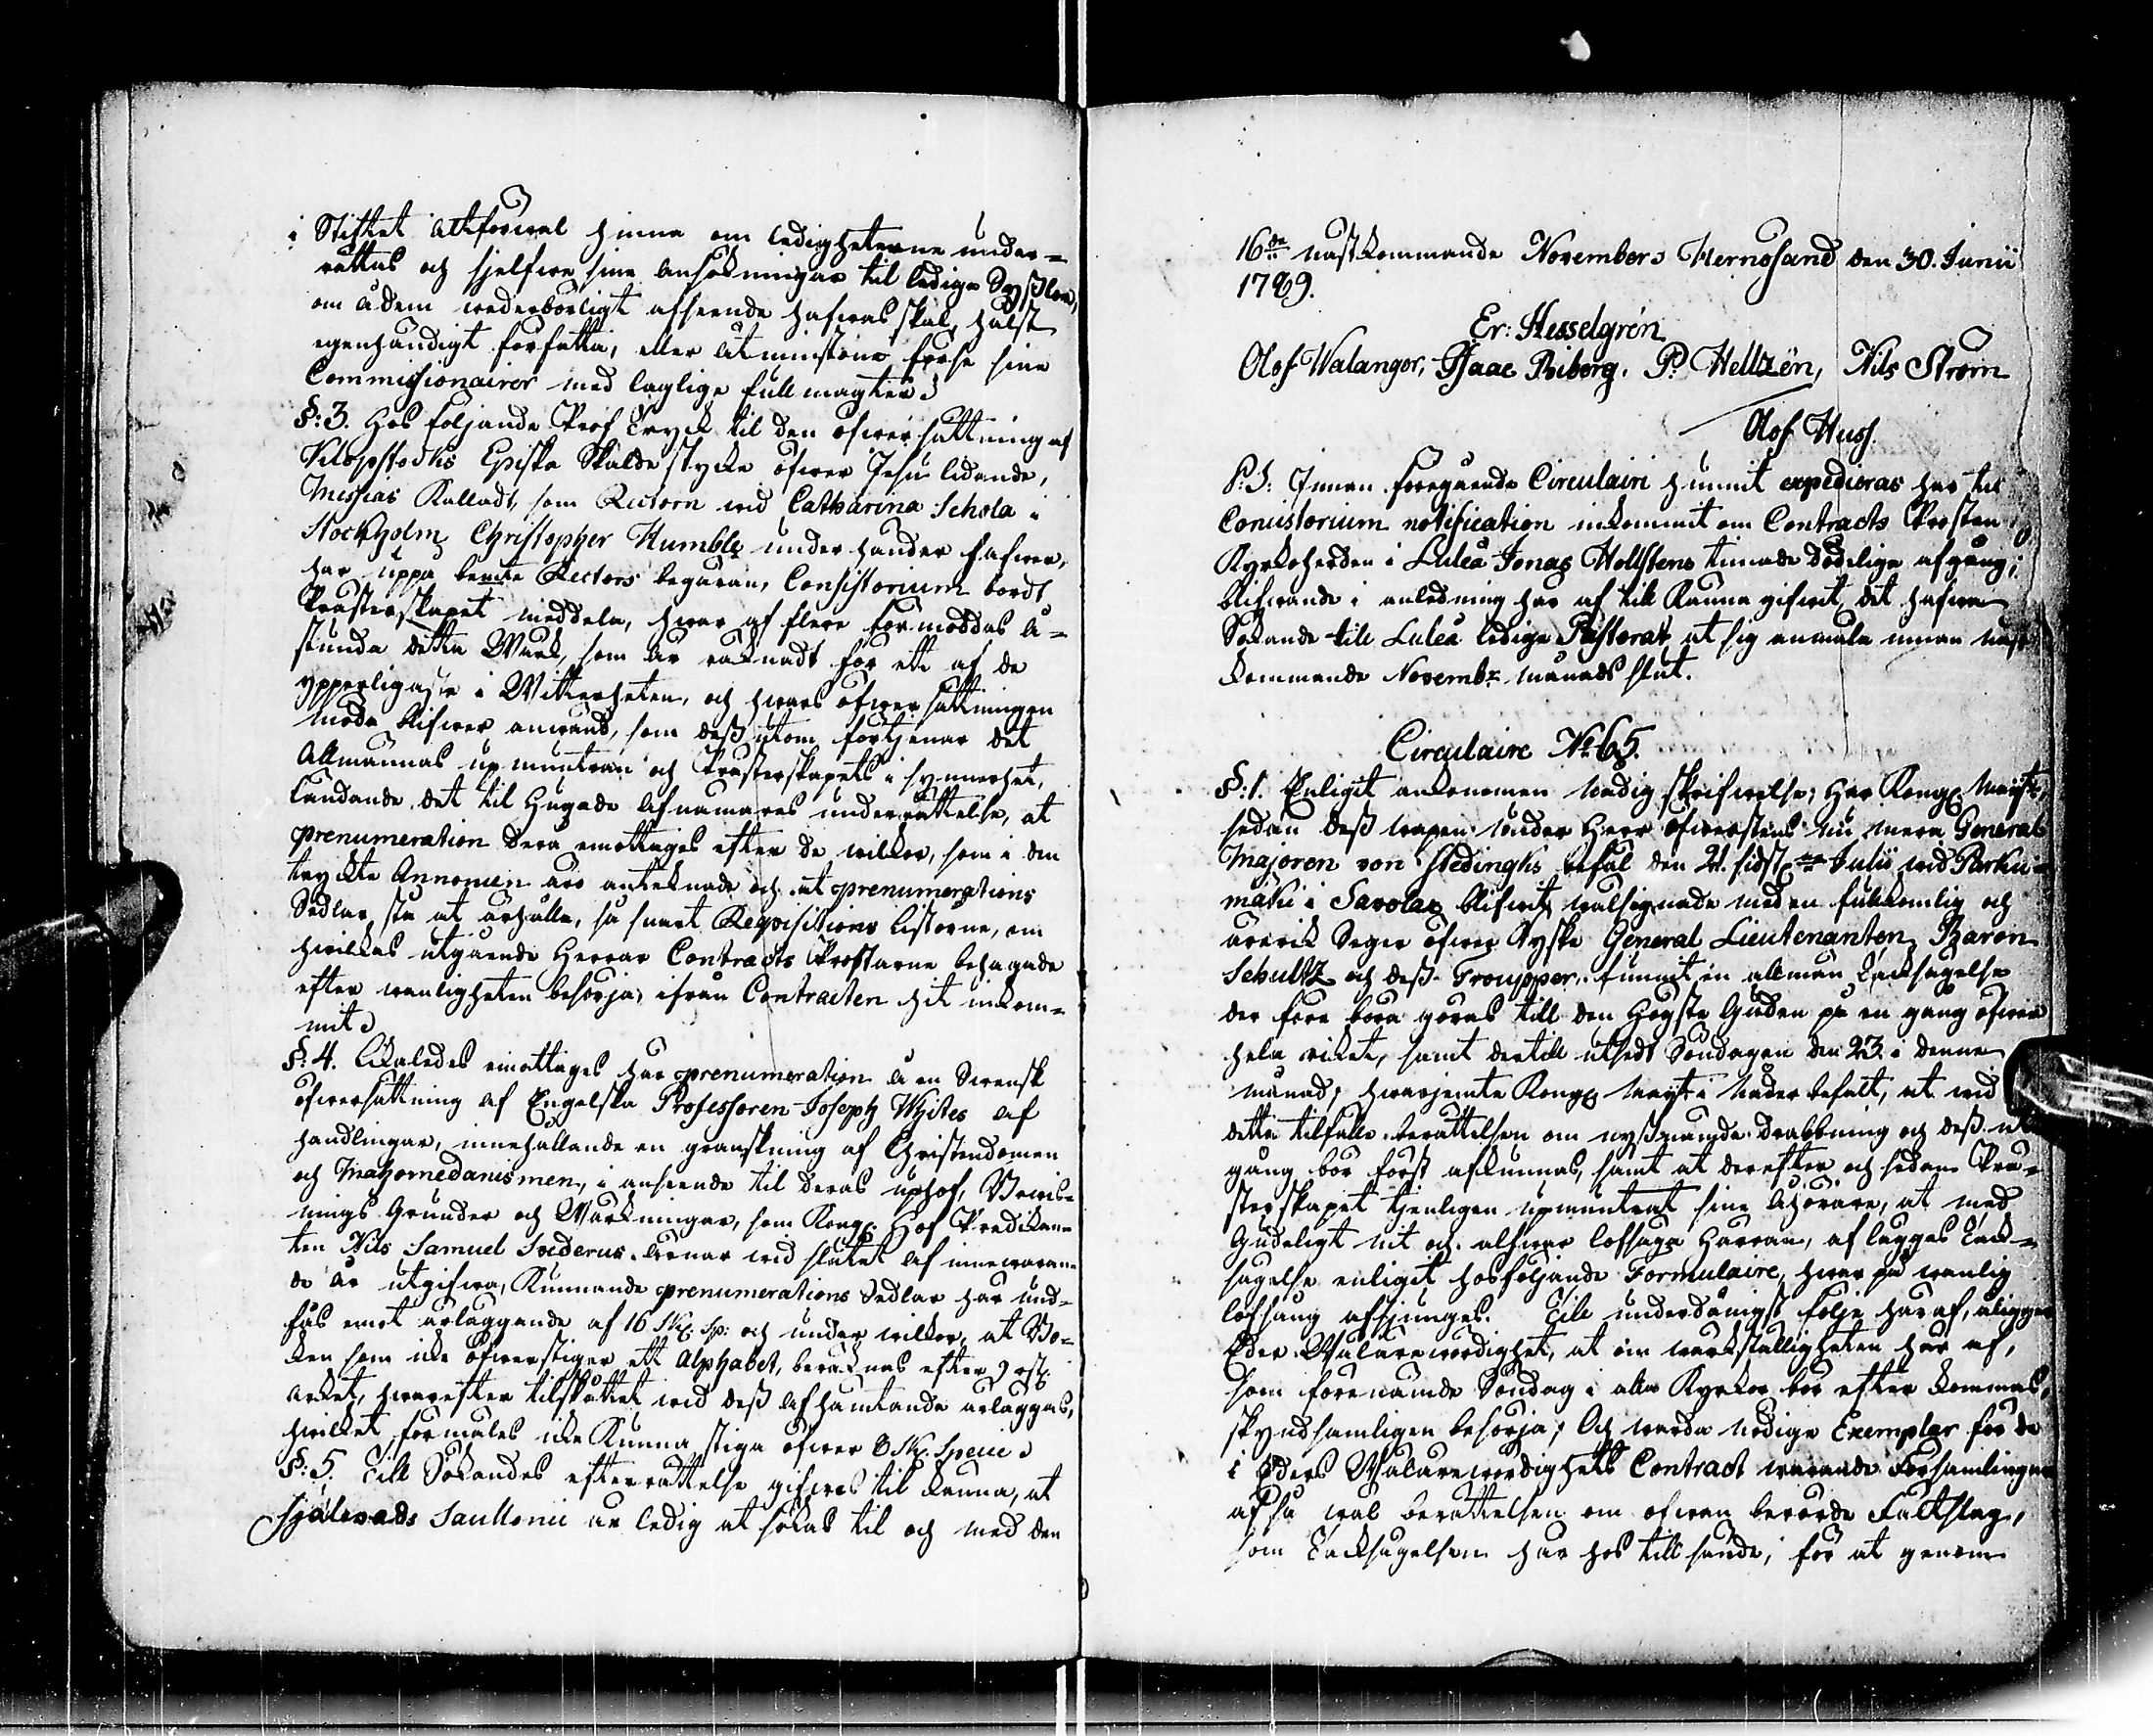 i Stiftet altförwäl hinna om ledigheterne under-
rättas och sjelfwe sine ansökningar til ledige Syßlor,
om å dem wederbörligt afseende hafwas skal, hälst
egenhändigt författa, eller åtminstone förse sine
Commissionairer med laglige fullmagter.
§: 3. Hos följande Prof Tryck til den öfwersättning af
Klopstocks Episka Skaldestycke öfwer Jesu lidande,
Messias Kalladt, som Rectorn wid Catharina Schola i
Stockholm Christopher Humble under händer hafwer,
har uppå bemte Rectors begäran, Consistorium bordt
Prästerskapet meddela, hwar af flere förmodas å-
stunda detta Wärk, som är räknadt för ett af de
ypperligaste i Witterheten, och hwars öfwersättningen
möda blifwer anwänd, som deß utom förtjenar det
Allmännas upmuntran och Prästerskapets i synnerhet,
Ländande det til hugade Afnämares underrättelse, at
prenumeration derå emottages efter de wilkor, som i den
tryckte Annoncen äro anteknade och at prenumerations
Sedlar stå at ärhålla, så snart Reqvisitions listorne, om
hwilkas utgående Herrar Contracts Prostarne behagade
efter wanligheten besörja, ifrån Contracten hit inkom-
mit.
§: 4. Likaledes emottages här prenumeration å en Swensk
öfwersättning af Engelska Professoren Joseph Whites Af
handlingar, innehållande en granskning af Christendomen
och Mahomedanismen, i anseende til deras uphof, Bewis-
nings Grunder och Wärkningar, som Kongl. Hof Predikan-
ten Nils Samuel Swederus ärnar wid slutet af innewaran-
de år utgifwa, Kunnande prenumerations Sedlar här und-
fås emot ärläggande af 16 Sk. Sp: och under wilkor, at Bo-
ken som icke öfwerstiger ett Alphabet, beräknas efter 9 rst.
Arket, hwarefter tilskottet wid deß afhämtande ärlägges,
hwilket förmodes icke Kunna stiga öfwer 8 Sk. Specie.
§: 5. Till Sökandes efterrättelse gifwes til känna, at
Själevads Sacellonie är ledig at sökas til och med den
16de nästkommande Novembers Hernösand den 30. Junii
1789.
Er: Hesselgrén
Olof Walanger, Isaac Riborg, P. Hellzén, Nils Ström
Olof Huss.
P: S: Innan föregående Circulaire hunnit expedieras har til
Consistorium notification inkommit om Contracts Prosten
Kyrkoherden i Luleå Jonas Hollstens timade dödelige afgång;
blifwande i anledning här af till Känna gifwit, det hafwa
Sökande till Luleå ledige Pastorat at sig anmäla innan näst
kommande Novembr månads slut.
Circulaire No 65.
§: 1. Enligit ankommen Nådig skrifwelse; Har Kongl. Mayt,
sedan deß wapen under Herr Öfwerstens nu mera General
Majoren von Stedingks befäl den 21. sidstl. Julii wid Parku-
mäki i Savolax blifwit wälsignade med en fullkomlig och
ärorik Seger öfwer Ryske General Lieutenanten, Baron
Schultz och deß Troupper, funnit en allmän Tacksägelse
der före böra göras till den Högste Guden på en gång öfwer
hela riket, samt dertill utsedt Söndagen den 23 i denne
månad; hwarjemte Kongl. Mayt i Nåder befalt, at wid
detta tilfälle berättelsen om nyßnämde drabbning och deß ut
gång bör först afkunnas, samt at derefter och sedan Prä-
sterskapet tjenligen upmuntrat sine Åhörare, at med
Gudeligt nit och alfwar lofsäga Herran, aflägges Tack-
sägelse enligit hosföljande Formulaire, hwar på wanlig
lofsång afsjunges. Till underdånigst följe här af, åligger
Eder Wälärewördighet, at om wärkställigheten här af,
som förenämde Söndag i alla Kyrkor bör efter kommas,
skyndsamligen besörja; Och warda nödige Exemplar för de
i Eders Wälärewördighets Contract warande Församlingar
af så wäl berättelsen om ofwan berörde Fältslag,
som Tacksägelsen här hos till sände, för at genom